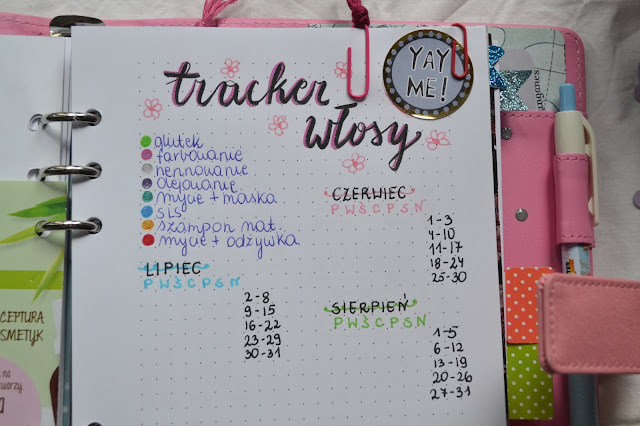 tracker
włosy
YAY
ME!
glutek
farbowanie
hennowanie
olejowanie
mycie + maska
sis
szampon nat.
mycie + odżywka
CZERWIEC
P W Ś C P S N
1-3
4-10
11-17
18-24
25-30
LIPIEC
P W Ś C P S N
2-8
9-15
16-22
23-29
30-31
SIERPIEŃ
P W Ś C P S N
1-5
6-12
13-19
20-26
27-31
CEPTURA
OSMETYK
na